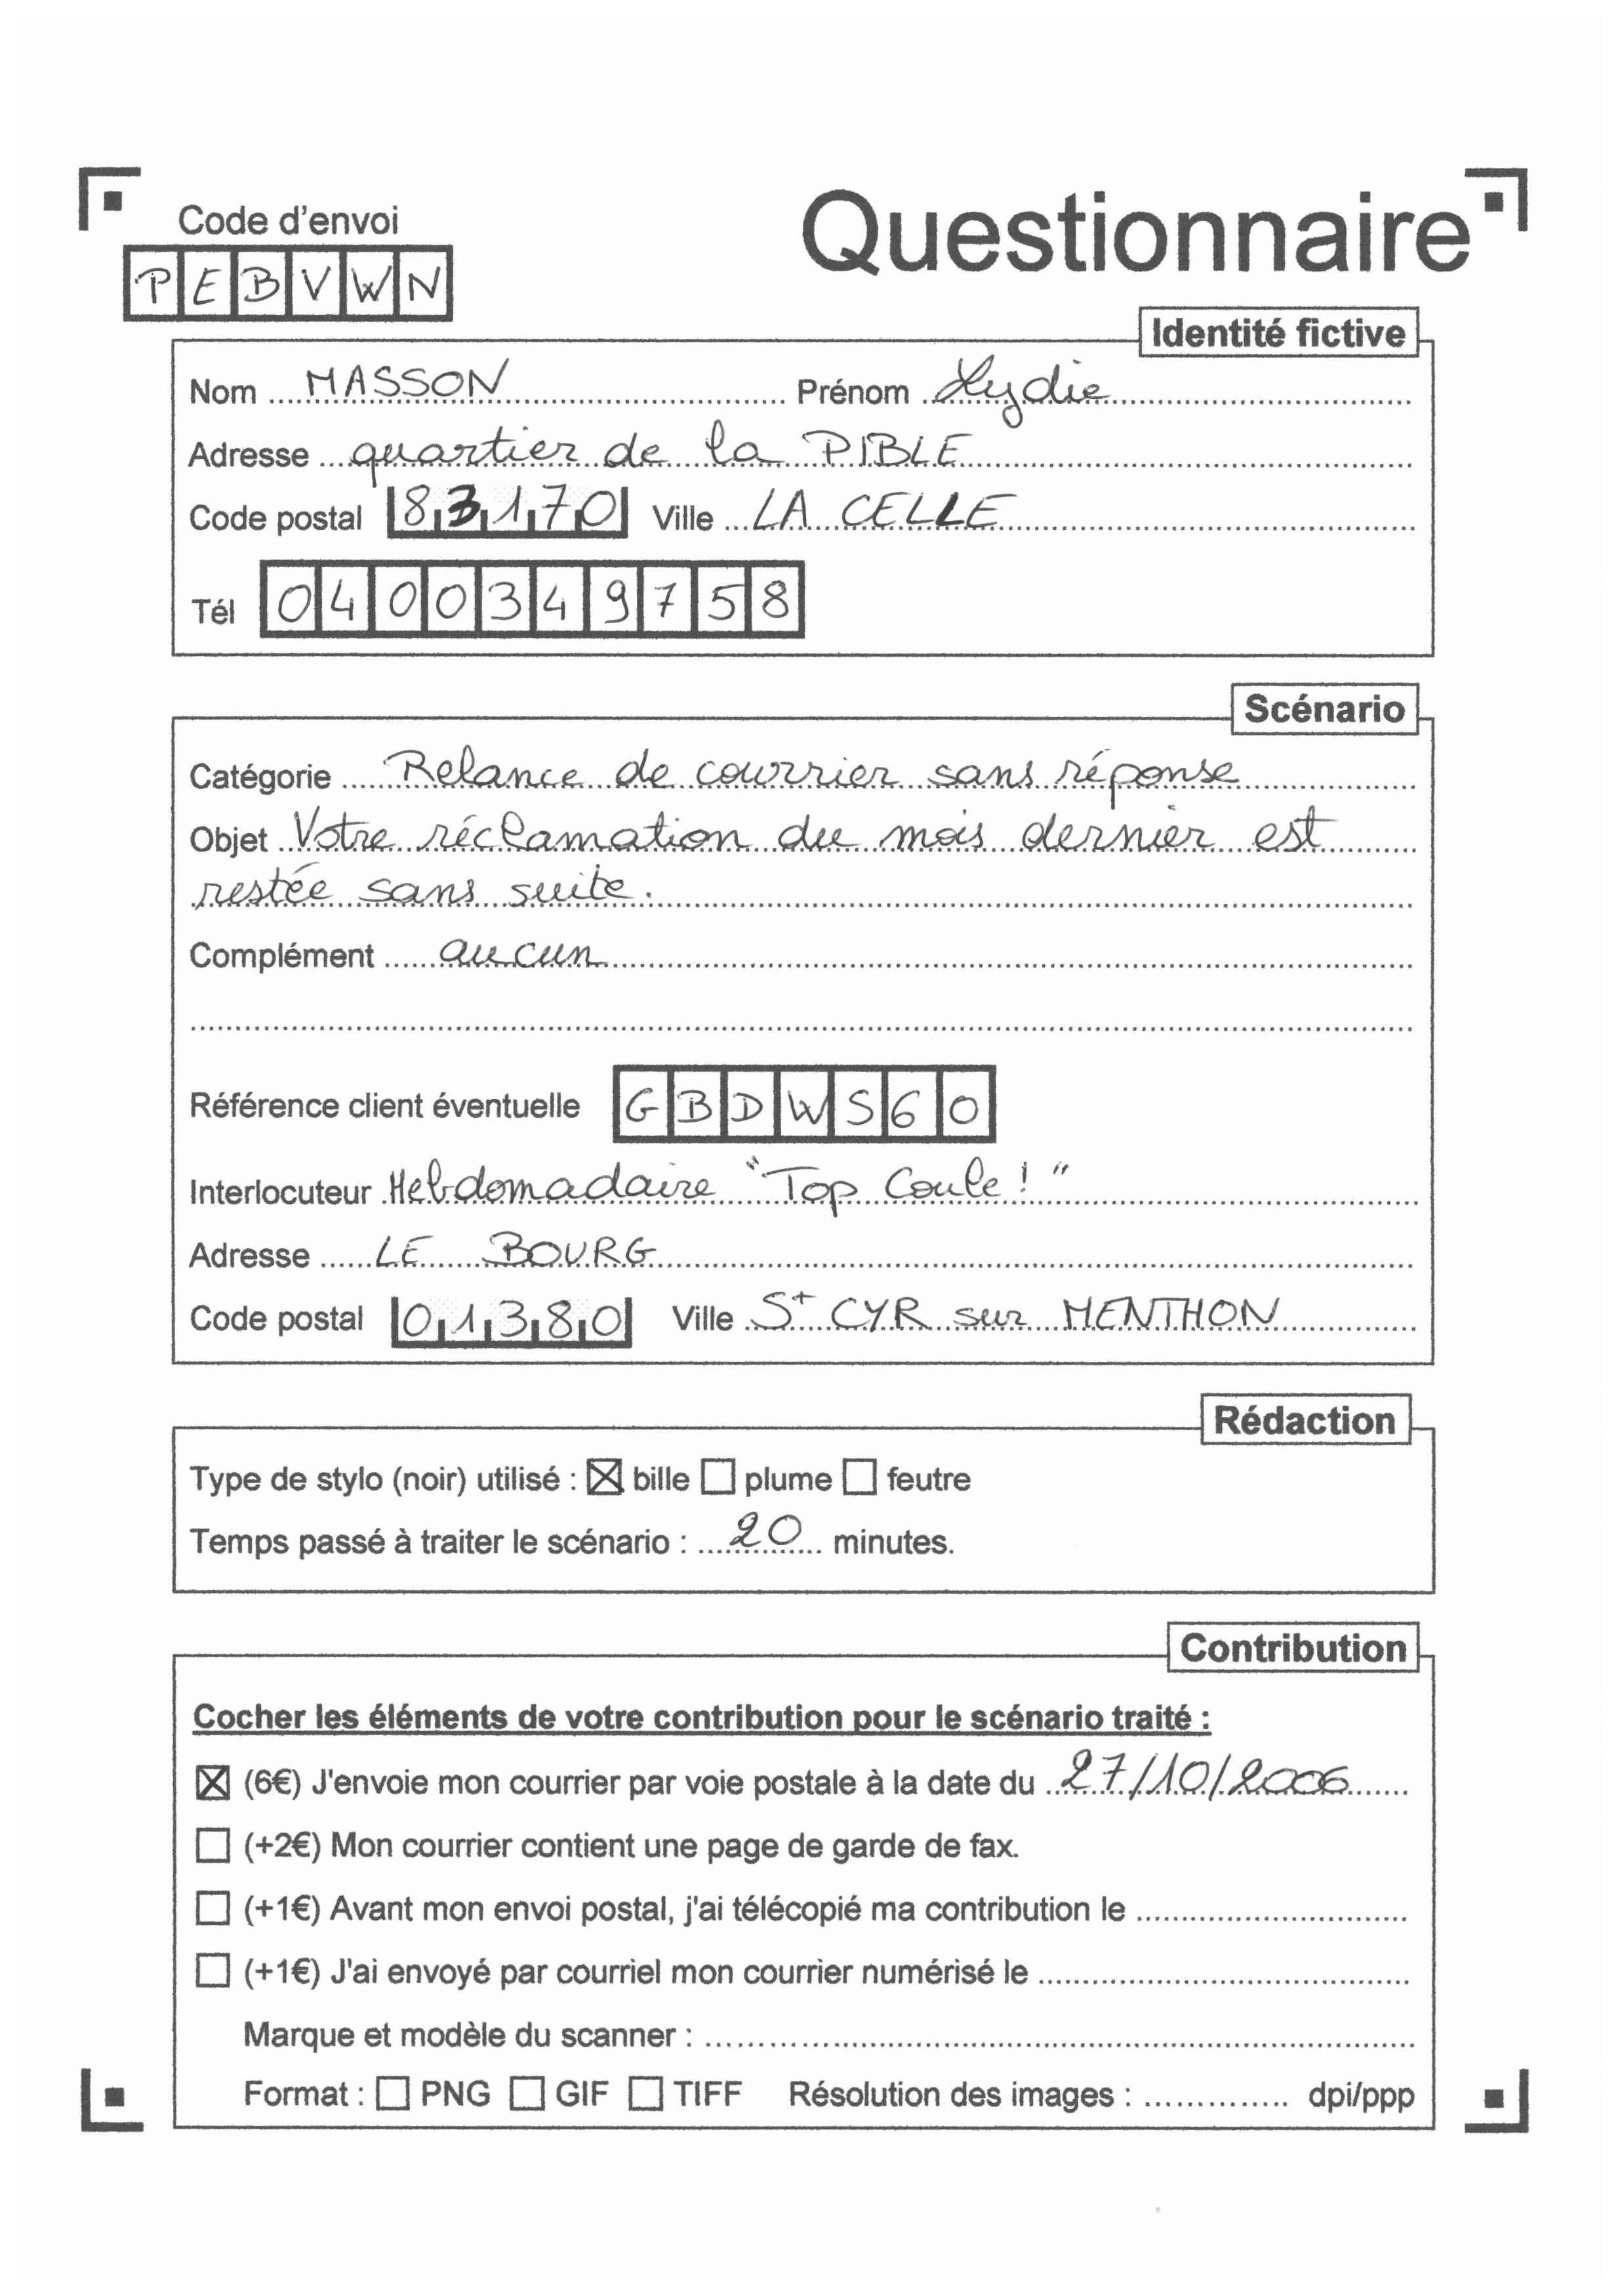 Code d'envoi
Questionnaire
PEBVWN
Identité fictive
Nom MASSON Prénom Lydie
Adresse quartier de la PIBLE
Code postal 83170 Ville LA CELLE
Tél 0400349758
Scénario
Catégorie Relance de courrier sans réponse
Objet Votre réclamation du mois dernier est
restée sans suite.
Complément aucun
Référence client éventuelle GBDWS60
Interlocuteur Hebdomadaire "Top Coule ! "
Adresse LE BOURG
Code postal 01380 Ville St CYR sur MENTHON
Rédaction
Type de stylo (noir) utilisé : ☒ bille ☐ plume ☐ feutre
Temps passé à traiter le scénario : 20 minutes.
Contribution
Cocher les éléments de votre contribution pour le scénario traité :
☒ (6€) J'envoie mon courrier par voie postale à la date du 27/10/2006
☐ (+2€) Mon courrier contient une page de garde de fax.
☐ (+1€) Avant mon envoi postal, j'ai télécopié ma contribution le
☐ (+1€) J'ai envoyé par courriel mon courrier numérisé le
Marque et modèle du scanner :
Format : ☐ PNG ☐ GIF ☐ TIFF Résolution des images : dpi/ppp